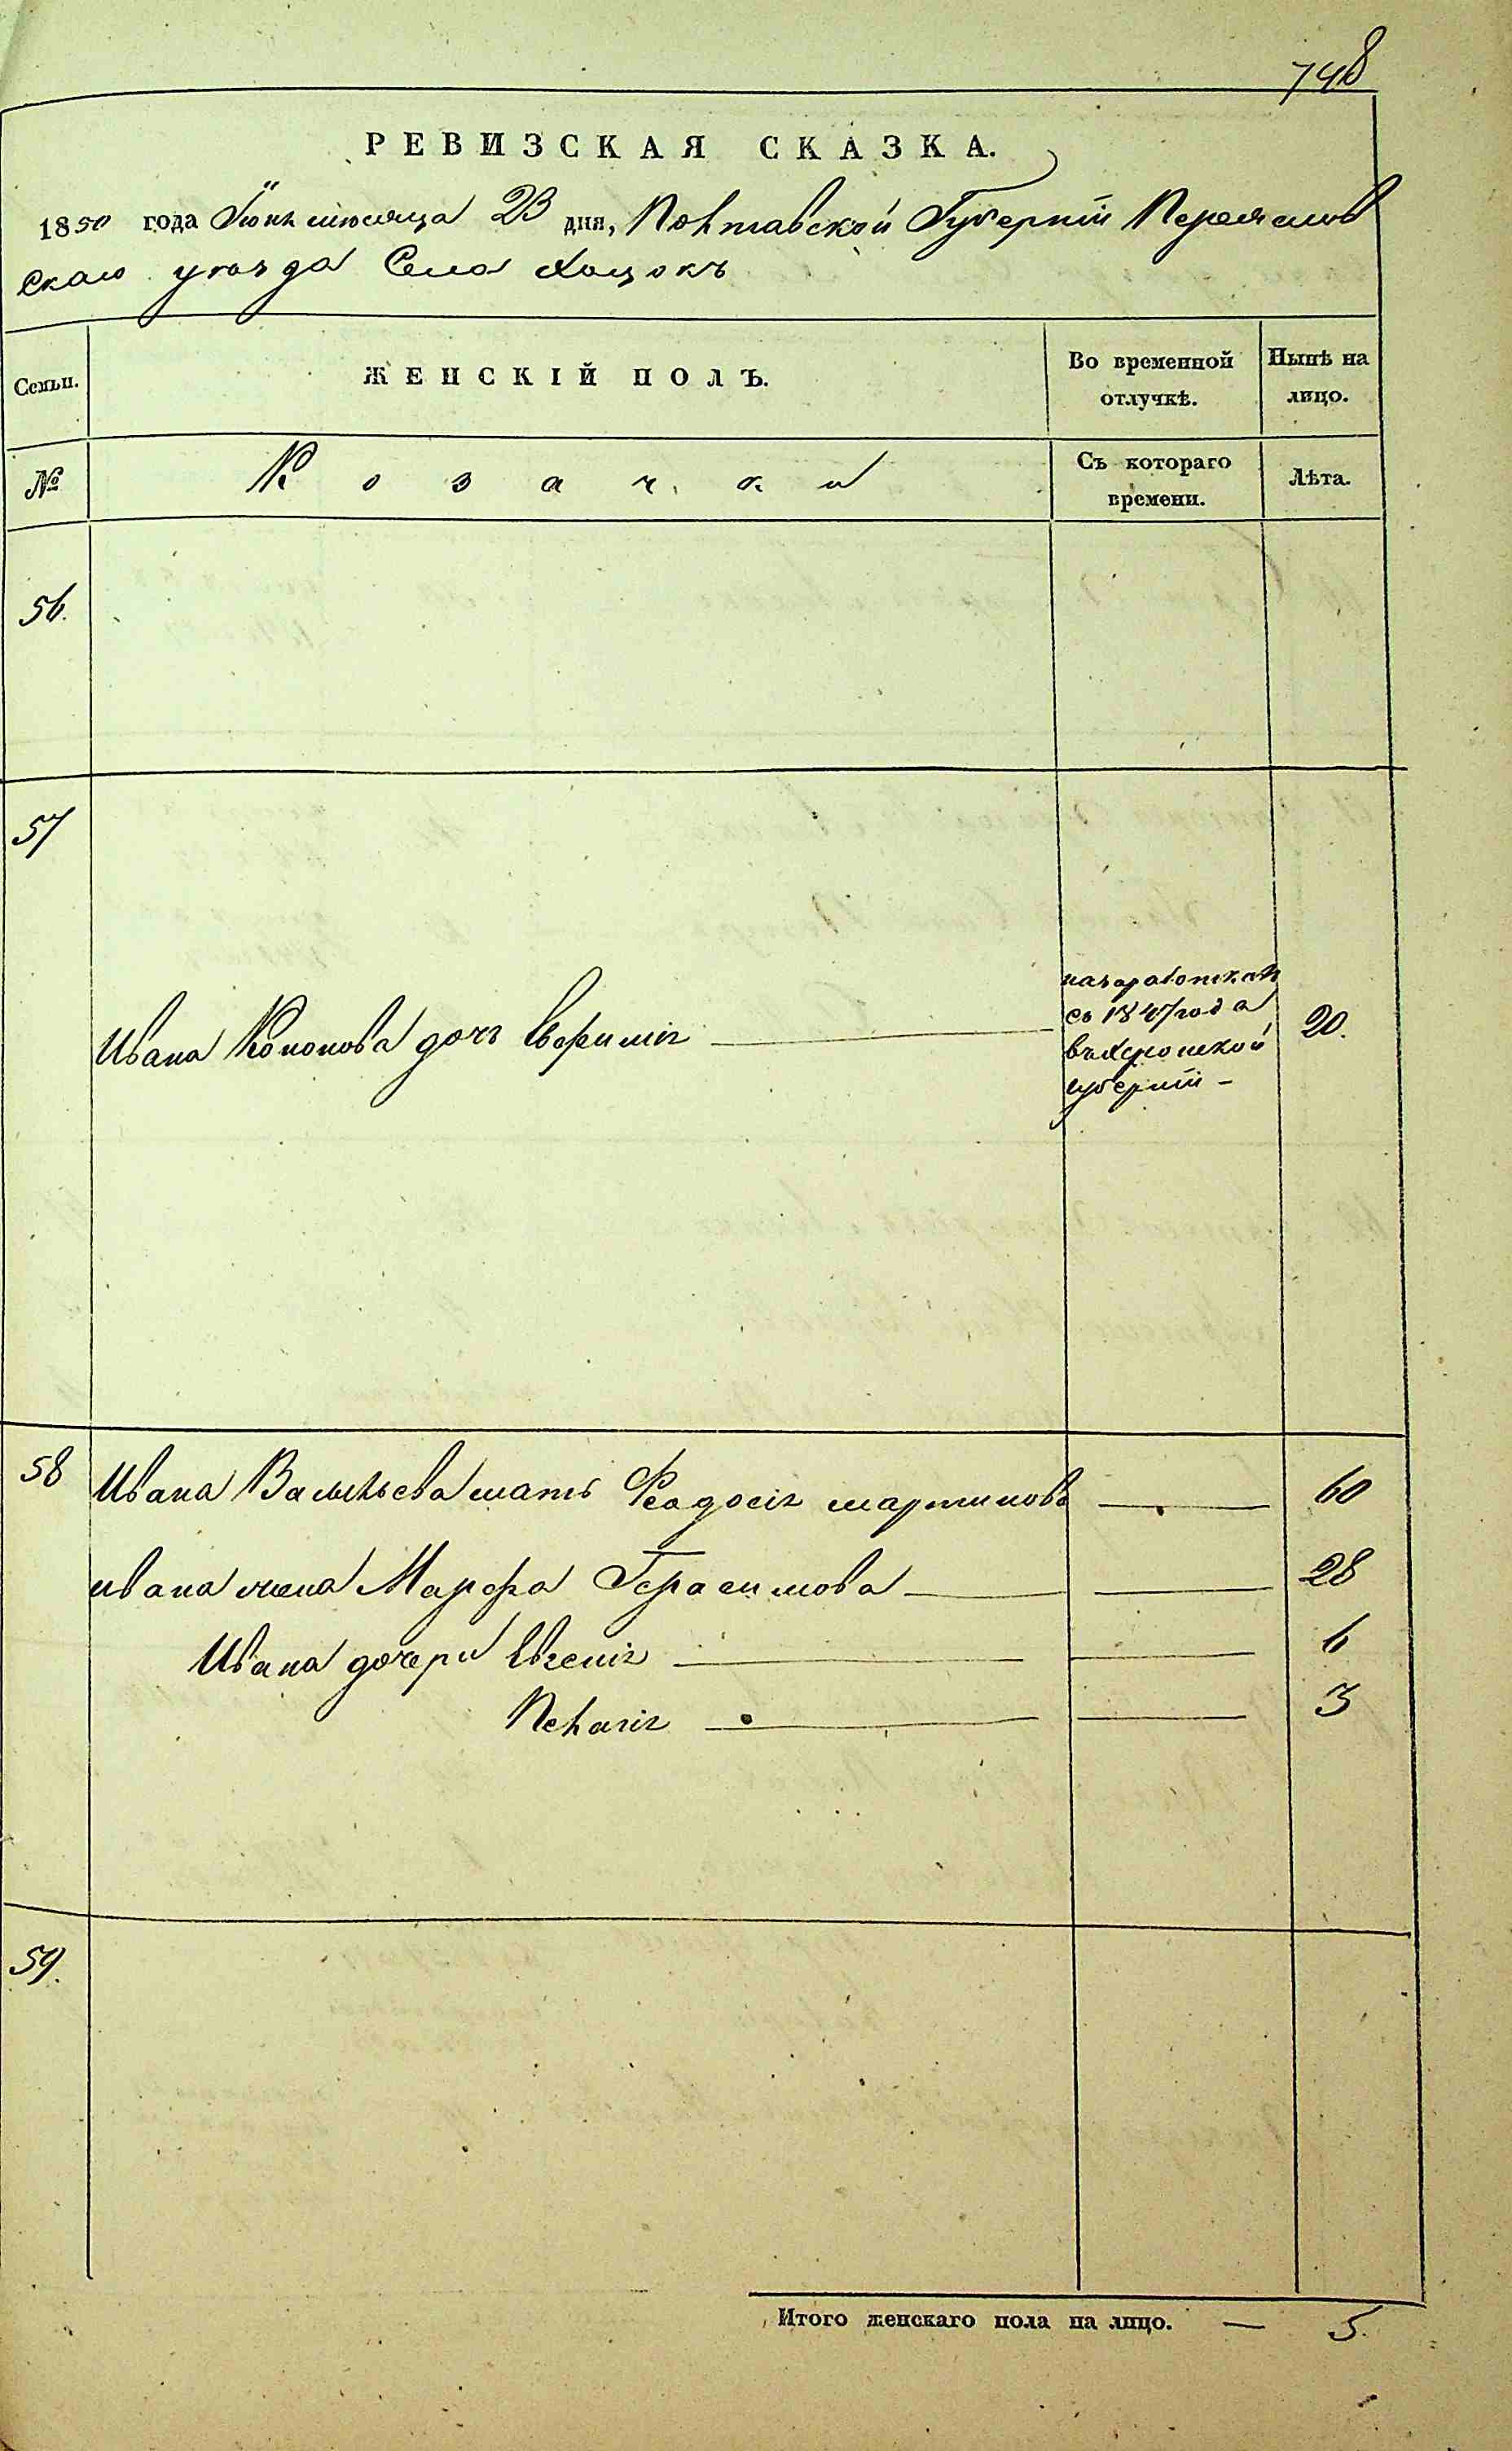 748
РЕВИЗСКАЯ СКАЗКА.
1850 года Іюня месяца 23 дня, Полтавской Губерніи Переяслов
скаго уезда Села Хоцокъ
Семьи. ЖЕНСКІЙ ПОЛЪ. Во временной отлучкѣ. Нынѣ на лицо.
№ Козачки Съ котораго времени. Лѣта.
56.
57
Ивана Кононова дочь Евфимія 20.
на заработках
съ 1847 года
въ Херсонской
губерніи
58 Ивана Васильева мать Феодосія мартинова 60
ивана жена Марфа Герасимова 28
Ивана дочери Евгенія 6
Пелагія 3
59.
Итого женскаго пола на лицо. — 5.